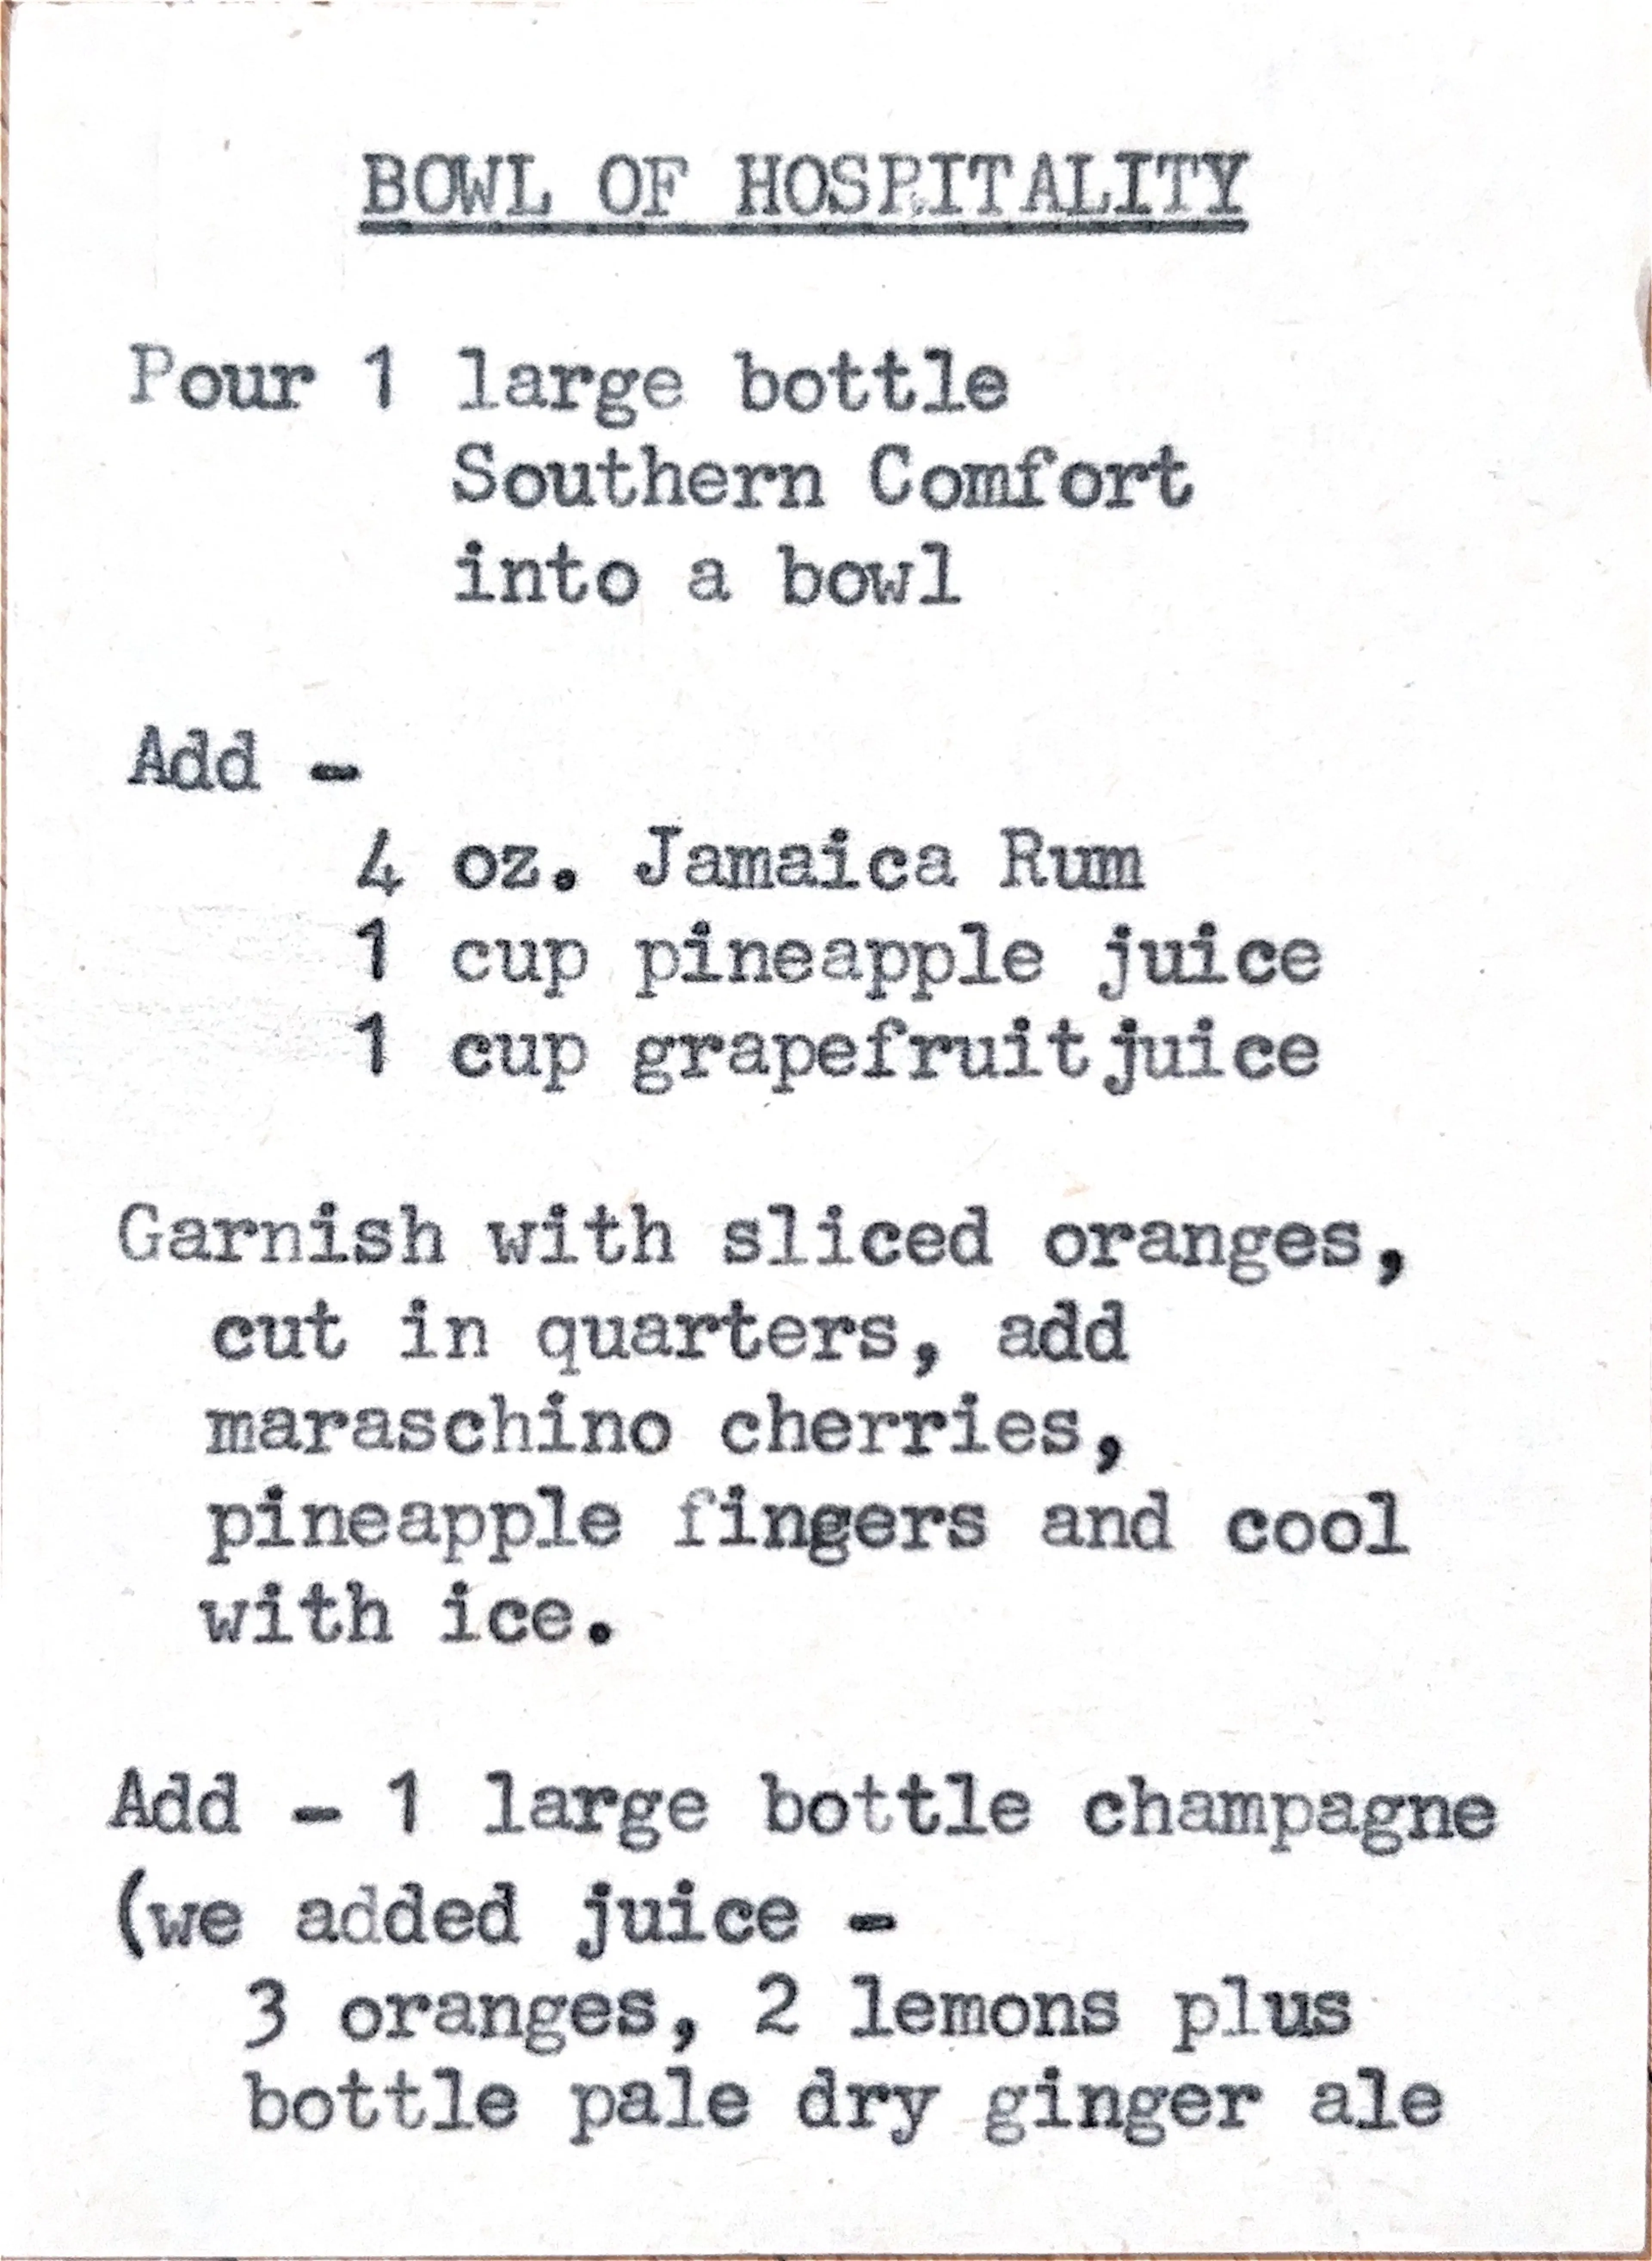 BOWL OF HOSPITALITY
Pour 1 large bottle
Southern Comfort
into a bowl
Add -
4 oz. Jamaica Rum
1 cup pineapple juice
1 cup grapefruit juice
Garnish with sliced oranges,
cut in quarters, add
maraschino cherries,
pineapple fingers and cool
with ice.
Add - 1 large bottle champagne
(we added juice -
3 oranges, 2 lemons plus
bottle pale dry ginger ale